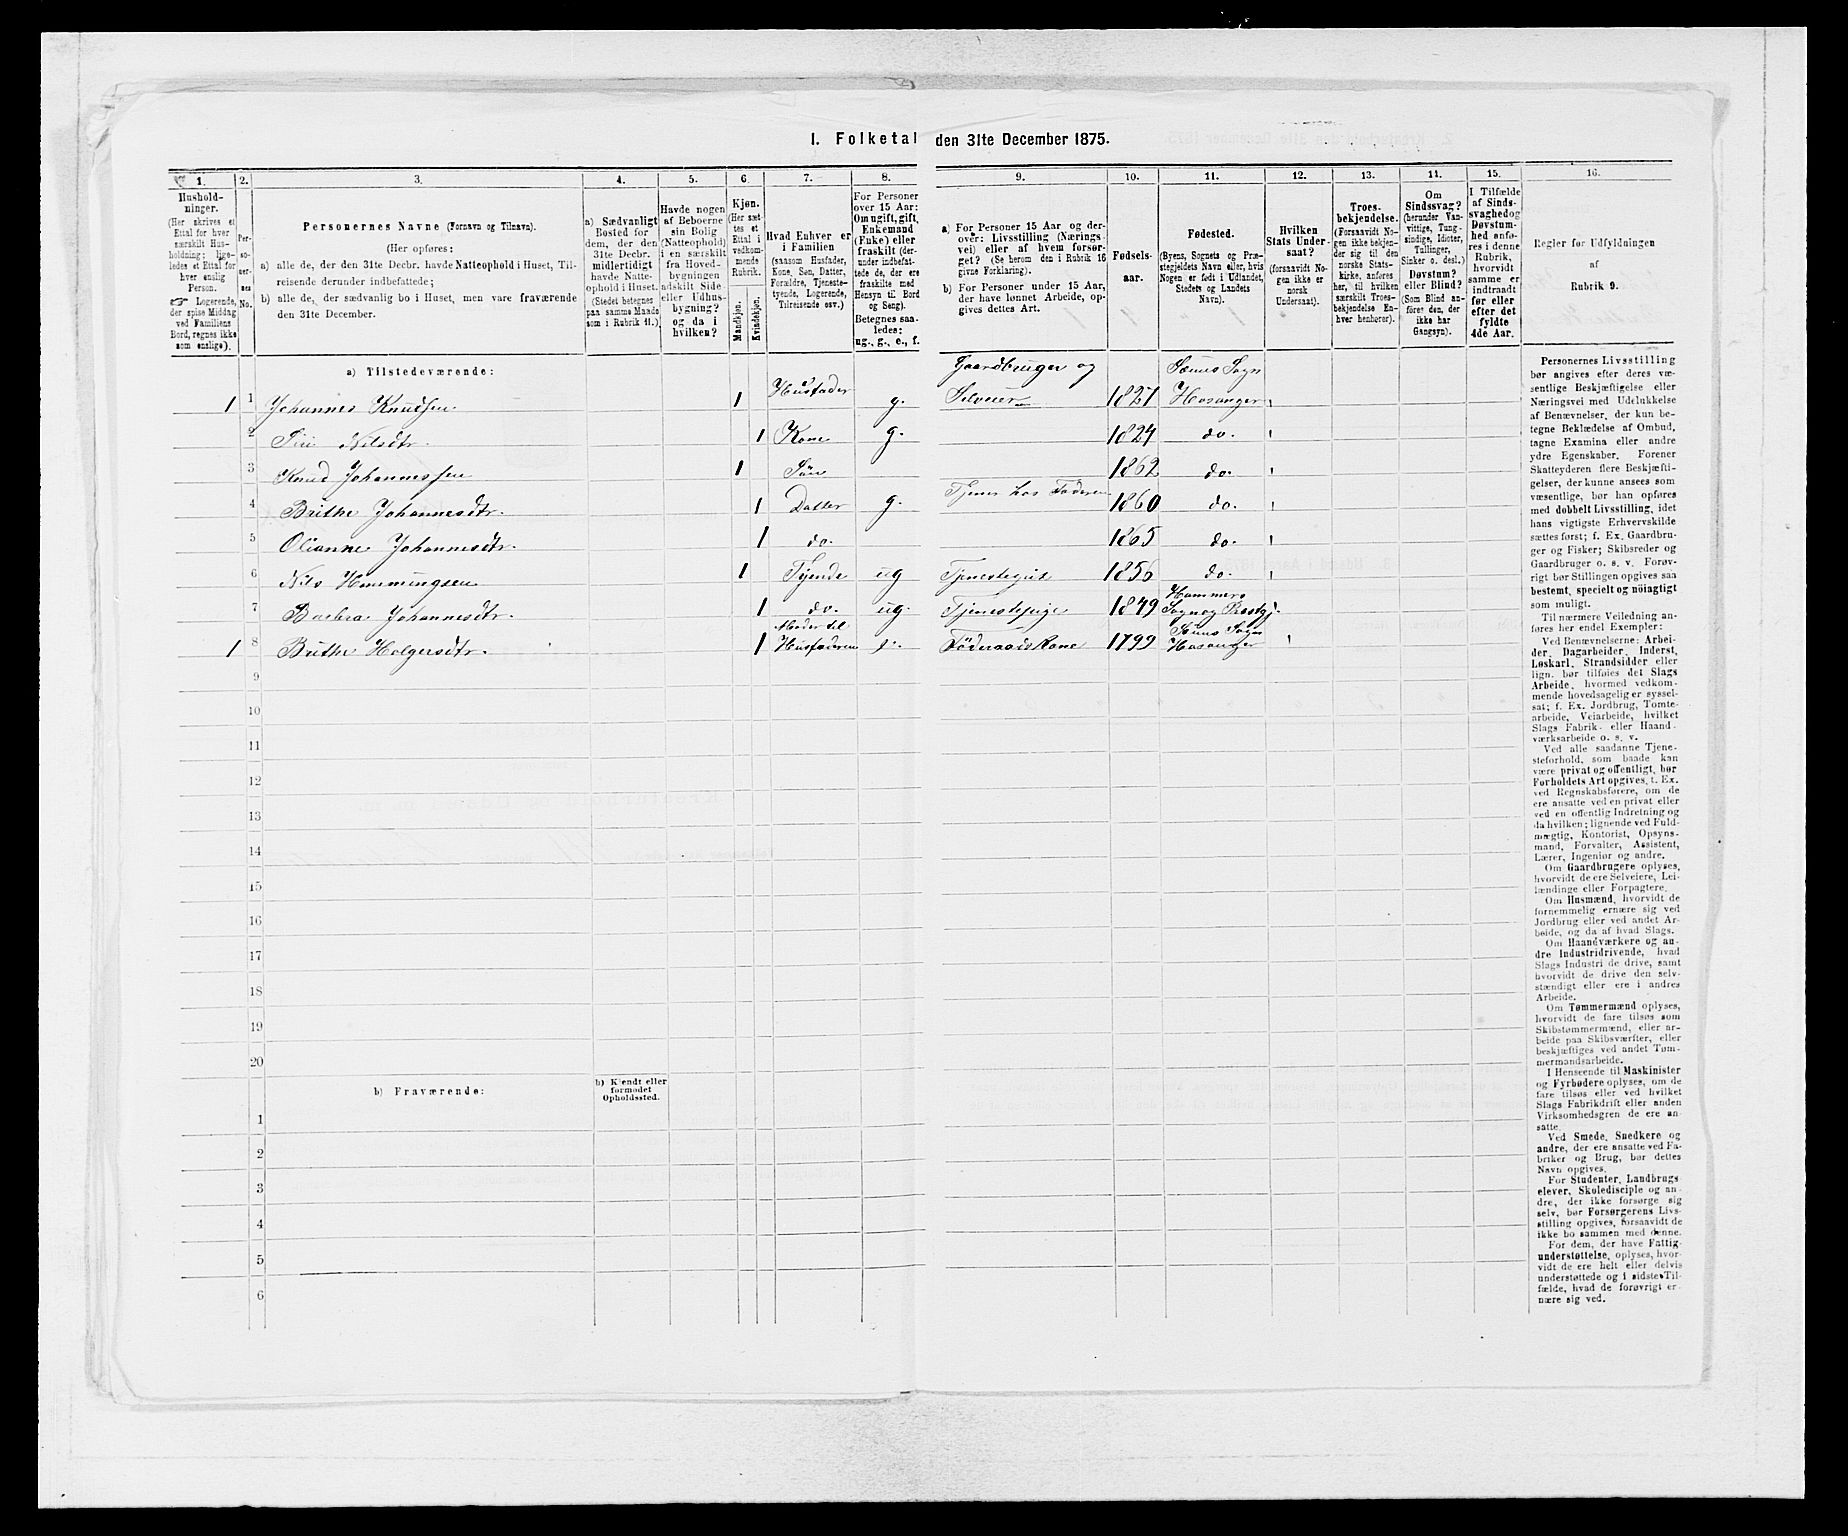 I. Folketal den 31te December 1875.
1. 2. 3. 4. 5. 6. 7. 8. 9. 10. 11. 12. 13. 14. 15. 16.
Husholdninger.
(Her skrives et
Ettal for hver
særskilt Hus-
holdning; lige-
ledes et Ettal for
hver enslig
Person.
☞ Logerende,
der spise Middag
ved Familiens
Bord, regnes ikke
som enslige).
Per-
so-
ner-
nes
No.
Personernes Navne (Fornavn og Tilnavn).
(Her opføres:
a) alle de, der den 31te Decbr. havde Natteophold i Huset, Til-
reisende derunder indbefattede;
b) alle de, der sædvanlig bo i Huset, men vare fraværende
den 31te December.
a) Sædvanligt
Bosted for
dem, der den
31te Decbr.
midlertidigt
havde Natte-
ophold i Huset.
(Stedet betegnes
paa samme Maade
som i Rubrik 11.)
Havde nogen
af Beboerne
sin Bolig
(Natteophold)
i en særskilt
fra Hoved-
bygningen
adskilt Side-
eller Udhus-
bygning?
og da i
hvilken?
Kjøn.
(Her sæt-
tes et
Ettal i
vedkom-
mende
Rubrik.
Mandkjøn.
Kvindekjøn.
Hvad Enhver er
i Familien
(saasom Husfader,
Kone, Søn, Datter,
Forældre, Tjeneste-
tyende, Logerende,
Tilreisende osv.)
For Personer
over 15 Aar:
Om ugift, gift,
Enkemand
(Enke) eller
fraskilt (der-
under indbefat-
tede de, der ere
fraskilte med
Hensyn til Bord
og Seng).
Betegnes saa-
ledes:
ug., g., e., f.
a) For Personer 15 Aar og der-
over: Livsstilling (Nærings-
vei) eller af hvem forsør-
get? (Se herom den i Rubrik 16
givne Forklaring).
b) For Personer under 15 Aar,
der have lønnet Arbeide, op-
gives dettes Art.
Fødsels-
aar.
Fødested.
(Byens, Sognets og Præ-
stegjeldets Navn eller, hvis
Nogen er født i Udlandet,
Stedets og Landets
Navn).
Hvilken
Stats Under-
saat?
(forsaavidt No-
gen ikke er
norsk
Undersaat).
Troes-
bekjendelse.
(Forsaavidt No-
gen ikke bekjen-
der sig til den
norske Stats-
kirke, anføres
her, til hvilken
særskilt Troes-
bekjendelse En-
hver henhører).
Om
Sindssvag?
(herunder Van-
vittige, Tung-
sindige, Idioter,
Tullinger,
Sinker o. desl.)
Døvstum?
eller Blind?
(Som Blind an-
føres den, der
ikke har
Gangsyn).
I Tilfælde
af Sinds-
svaghed og
Døvstum-
hed anfø-
res i denne
Rubrik,
hvorvidt
samme er
indtraadt
før eller
efter det
fyldte
4de Aar.
Regler for Udfyldningen
af
Rubrik 9.
a) Tilstedeværende:
1 1 Johannes Knudsen 1 Husfader g. Gaardbruger og Selveier 1821 Hosanger
2 Siri Nilsdtr. 1 Kone g. 1824 do.
3 Knud Johannessen 1 Søn 1862 do.
4 Brithe Johannesdtr. 1 Datter g. Tjener hos Faderen 1860 do.
5 Olianne Johannesdtr. 1 do. 1865 do.
6 Nils Hemmingsen 1 Tyende ug Tjenestegut 1856 do.
7 Barbra Johannesdtr. 1 do. ug. Tjenestepige 1849 Hammers Sogn og Prestgj.
1 8 Brithe Holgersdtr. 1 Moder til Husfaderen e. Föderaadskone 1799 Hosanger
9
10
11
12
13
14
15
16
17
18
19
20
b) Fraværende:
b) Kjendt eller
formodet
Opholdssted.
1
2
3
4
5
6
Personernes Livsstilling
bør angives efter deres væ-
sentlige Beskjæftigelse eller
Næringsvei med Udelukkelse
af Benævnelser, der kun be-
tegne Beklædelse af Ombud,
tagne Examina eller andre
ydre Egenskaber. Forener
Skatteyderen flere Beskjæfti-
gelser, der kunne ansees som
væsentlige, bør han opføres
med dobbelt Livsstilling, idet
hans vigtigste Erhvervskilde
sættes først; f. Ex. Gaardbru-
ger og Fisker; Skibsreder og
Gaardbruger o. s. v. Forøv-
rigt bør Stillingen opgives saa
bestemt, specielt og nøiagtigt
som muligt.
Til nærmere Veiledning an-
føres her endel Exempler:
Ved Benævnelserne: Arbei-
der, Dagarbeider, Inderst,
Løskarl, Strandsidder eller
lign. bør tilføies det Slags
Arbeide, hvormed vedkom-
mende hovedsagelig er syssel-
sat; f. Ex. Jordbrug, Tomte-
arbeide, Veiarbeide, hvilket
Slags Fabrik- eller Haand-
værksarbeide o. s. v.
Ved alle saadanne Tjene-
steforhold, som baade kan
være privat og offentligt, bør
Forholdets Art opgives, t. Ex.
ved Regnskabsførere, om de
ere ansatte ved en privat eller
ved en offentlig Indretning og
da hvilken; lignende ved Fuld-
mægtig, Kontorist, Opsyns-
mand, Forvalter, Assistent,
Lærer, Ingeniør og andre.
Om Gaardbrugere oplyses,
hvorvidt de ere Selveiere, Lei-
lændinge eller Forpagtere.
Om Husmænd, hvorvidt de
fornemmelig ernære sig ved
Jordbrug eller ved andet Ar-
beide, og da af hvad Slags.
Om Haandværkere og an-
dre Industridrivende, hvad
Slags Industri de drive, samt
hvorvidt de drive den selv-
stændigt eller ere i andres
Arbeide.
Om Tømmermænd oplyses,
hvorvidt de fare tilsøs som
Skibstømmermænd, eller ar-
beide paa Skibsværfter, eller
beskjæftiges ved andet Tøm-
mermandsarbeide.
I Henseende til Maskinister
og Fyrbødere oplyses, om de
fare tilsøs eller ved hvilket
Slags Fabrikdrift eller anden
Virksomhedsgren de ere an-
satte.
Ved Smede, Snedkere og
andre, der ere ansatte ved Fa-
briker og Brug, bør dettes
Navn opgives.
For Studenter, Landbrugs-
elever, Skoledisciple og an-
dre, der ikke forsørge sig
selv, bør Forsørgerens Livs-
stilling opgives, forsaavidt de
ikke bo sammen med denne.
For dem, der have Fattig-
understøttelse, oplyses, hvor-
vidt de ere helt eller delvis
understøttede og i sidste Til-
fælde, hvad de forøvrigt er-
nære sig ved.